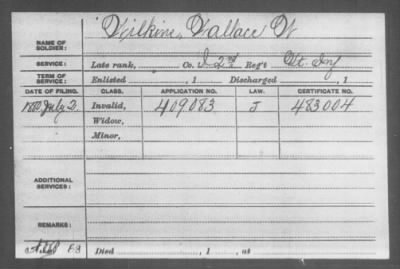 Wilkins, Wallace W
NAME OF SOLDIER:
SERVICE: Late rank, Co. I 2nd Reg't Vt. Inf
TERM OF SERVICE: Enlisted , 1 Discharged , 1
DATE OF FILING. CLASS. APPLICATION NO. LAW. CERTIFICATE NO.
1880 July 2 Invalid, 409083 J 483004
Widow,
Minor,
ADDITIONAL SERVICES:
REMARKS:
Died , 1 , at